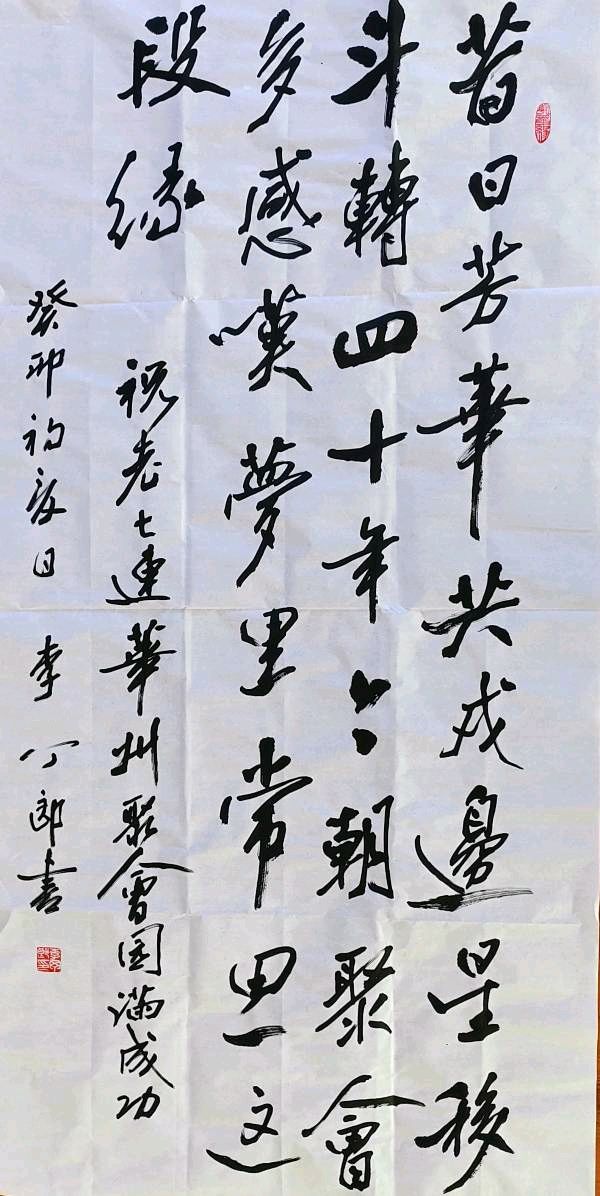 昔日芳華共戍邊星移
斗轉四十年今朝聚會
多感嘆夢里常思这
段缘
祝老七連華州聚會圓滿成功
癸卯初夏日 李 郎書